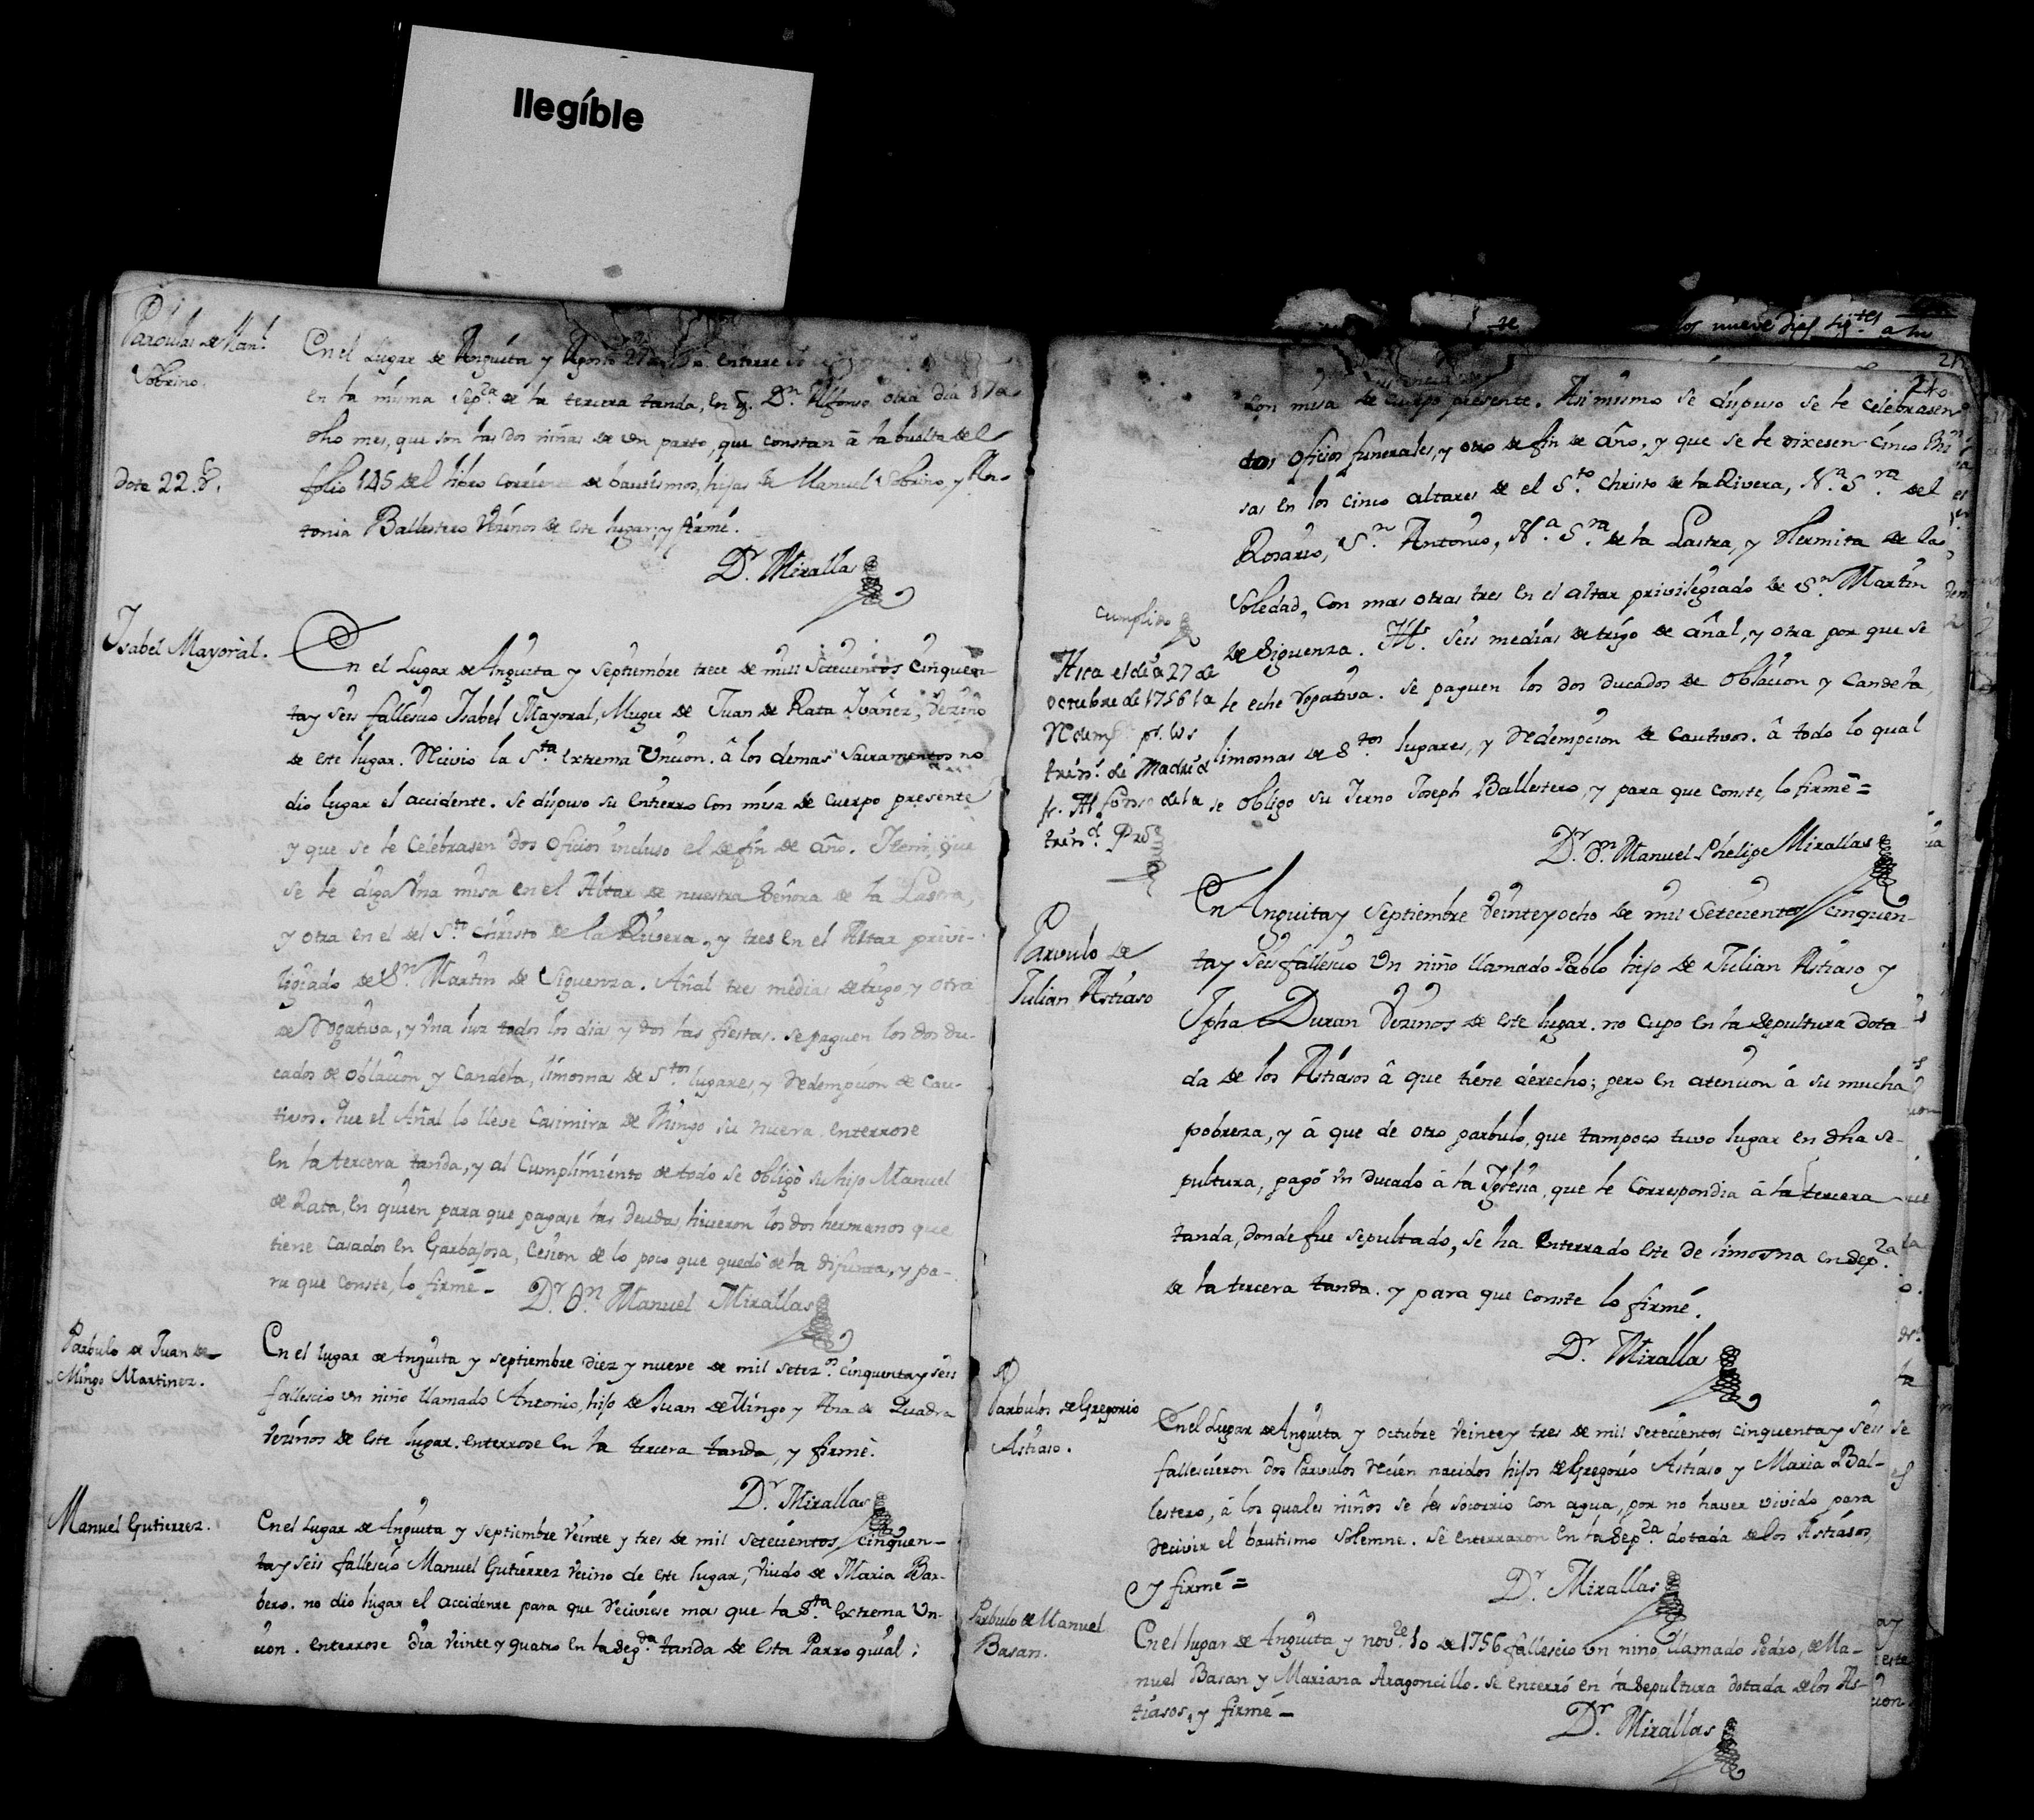 Ilegíble
Parbulas de Man.l
Sobrino.
En el Lugar de Anguita y Agosto 27 enterre
en la misma sep.ra de la tercera tanda, en q. Dn. Alfonso otra dia 17 de
dho mes, que son las dos niñas de un parto, que constan â la buelta del
folio 145 del libro corriente de bautismos, hijas de Manuel Sobrino, y An-
tonia Ballestero Vezinos de este lugar, y firmé.
Dota 22 r.
Dr. Mirallas
Isabel Mayoral.
En el Lugar de Anguita y Septiembre trece de mill Setecientos cinquen-
ta y seis fallescio Isabel Mayoral, Muger de Juan de Rata Ivañez, Vezino
de este lugar. Recivio la S.ta extrema Uncion. â los demas Sacramentos no
dio lugar el accidente. Se dispuso su entierro con misa de cuerpo presente
y que se le celebrasen dos oficios incluso el de fin de año. Item, que
se le diga Una misa en el Altar de nuestra Señora de la Lastra,
y otra en el del S.to Christo de la Rivera, y tres en el Altar privi-
ligiado de Sn. Martin de Siguenza. Añal tres medias de trigo, y otra
de Rogativa, y Una luz todos los dias y dos las fiestas. se paguen los dos du-
cados de oblacion y Candela, limosnas de S.tos lugares, y Redempcion de Cau-
tivos. Que el Añal lo lleve Casimira de Mingo su nuera. enterrose
en la tercera tanda, y al Cumplimiento de todo se obligò su hijo Manuel
de Rata, en quien para que pagase las deudas, hicieron los dos hermanos que
tiene casados en Garbajosa, Cesion de lo poco que quedò de la difunta, y pa-
ra que conste, lo firmé - Dr. Dn. Manuel Mirallas
Parbulo de Juan de
Mingo Martinez.
En el lugar de Anguita y septiembre diez y nueve de mil setez.os cinquenta y seis
fallescio un niño llamado Antonio, hijo de Juan de Mingo y Ana de Quadra
Vezinos de este lugar. enterrose en la tercera tanda, y firmè.
Dr. Mirallas
Manuel Gutierrez.
En el Lugar de Anguita y septiembre veinte y tres de mil setecientos cinquen-
ta y seis fallescio Manuel Gutierrez Vecino de este lugar, Viudo de Maria Bar-
bero. no dio lugar el accidente para que reciviese mas que la S.ta extrema Un-
cion. enterrose dia veinte y quatro en la seg.da tanda de esta Parroquial;
los nueve dias sig.tes a su
240
con misa de cuerpo presente. Asimismo se dispuso se le celebrasen
dos oficios funerales, y otro de fin de año, y que se le dixesen cinco Mi-
sas en los cinco altares de el S.to Christo de la Rivera, N.a S.ra del
Rosario, Sn. Antonio, N.a S.ra de la Lastra, y Hermita de la
Soledad, con mas otras tres en el altar privilegiado de Sn. Martin
de Siguenza. It. seis medias de trigo de añal, y otra por que se
le eche rogativa. Se paguen los dos ducados de oblacion y Candela,
limosnas de S.tos lugares, y Redempcion de cautivos. â todo lo qual
se obligo su Yerno Joseph Ballestero, y para que conste, lo firmé =
Dr. Dn. Manuel Phelipe Mirallas
Cumplido
Asta el dia 27 de
octubre de 1756 la
Redemp.
trin.s de Madrid
fr. Alfonso de la
trin.d
Parvulo de
Julian Astiaso
En Anguita y Septiembre Veinte y ocho de mil Setecientos cinquen-
ta y seis fallescio Un niño llamado Pablo hijo de Julian Astiaso y
Jpha Duran Vezinos de este lugar. no cupo en la Sepultura dota-
da de los Astiasos â que tiene derecho; pero en atencion â su mucha
pobreza, y â que de otro parbulo, que tampoco tuvo lugar en dha se-
pultura, pagó un ducado â la Iglesia, que le correspondia â la tercera
tanda, donde fue sepultado, se ha enterrado este de limosna en sep.ra
de la tercera tanda. y para que conste lo firmé.
Dr. Mirallas
Parbulos de Gregorio
Astiaso.
En el Lugar de Anguita y octubre veinte y tres de mil setecientos cinquenta y seis
fallescieron dos Parvulos recien nacidos hijos de Gregorio Astiaso y Maria Bal-
lestero, â los quales niños se les socorrio con agua, por no haver vivido para
recivir el bautismo solemne. Se enterraron en la sep.ra dotada de los Astiasos,
y firmé =
Dr. Mirallas
Parbulo de Manuel
Basan.
En el lugar de Anguita y nov.re 10 de 1756 fallescio un niño, llamado Pedro, de Ma-
nuel Basan y Mariana Aragoncillo. Se enterró en la Sepultura dotada de los As-
tiasos, y firmé -
Dr. Mirallas